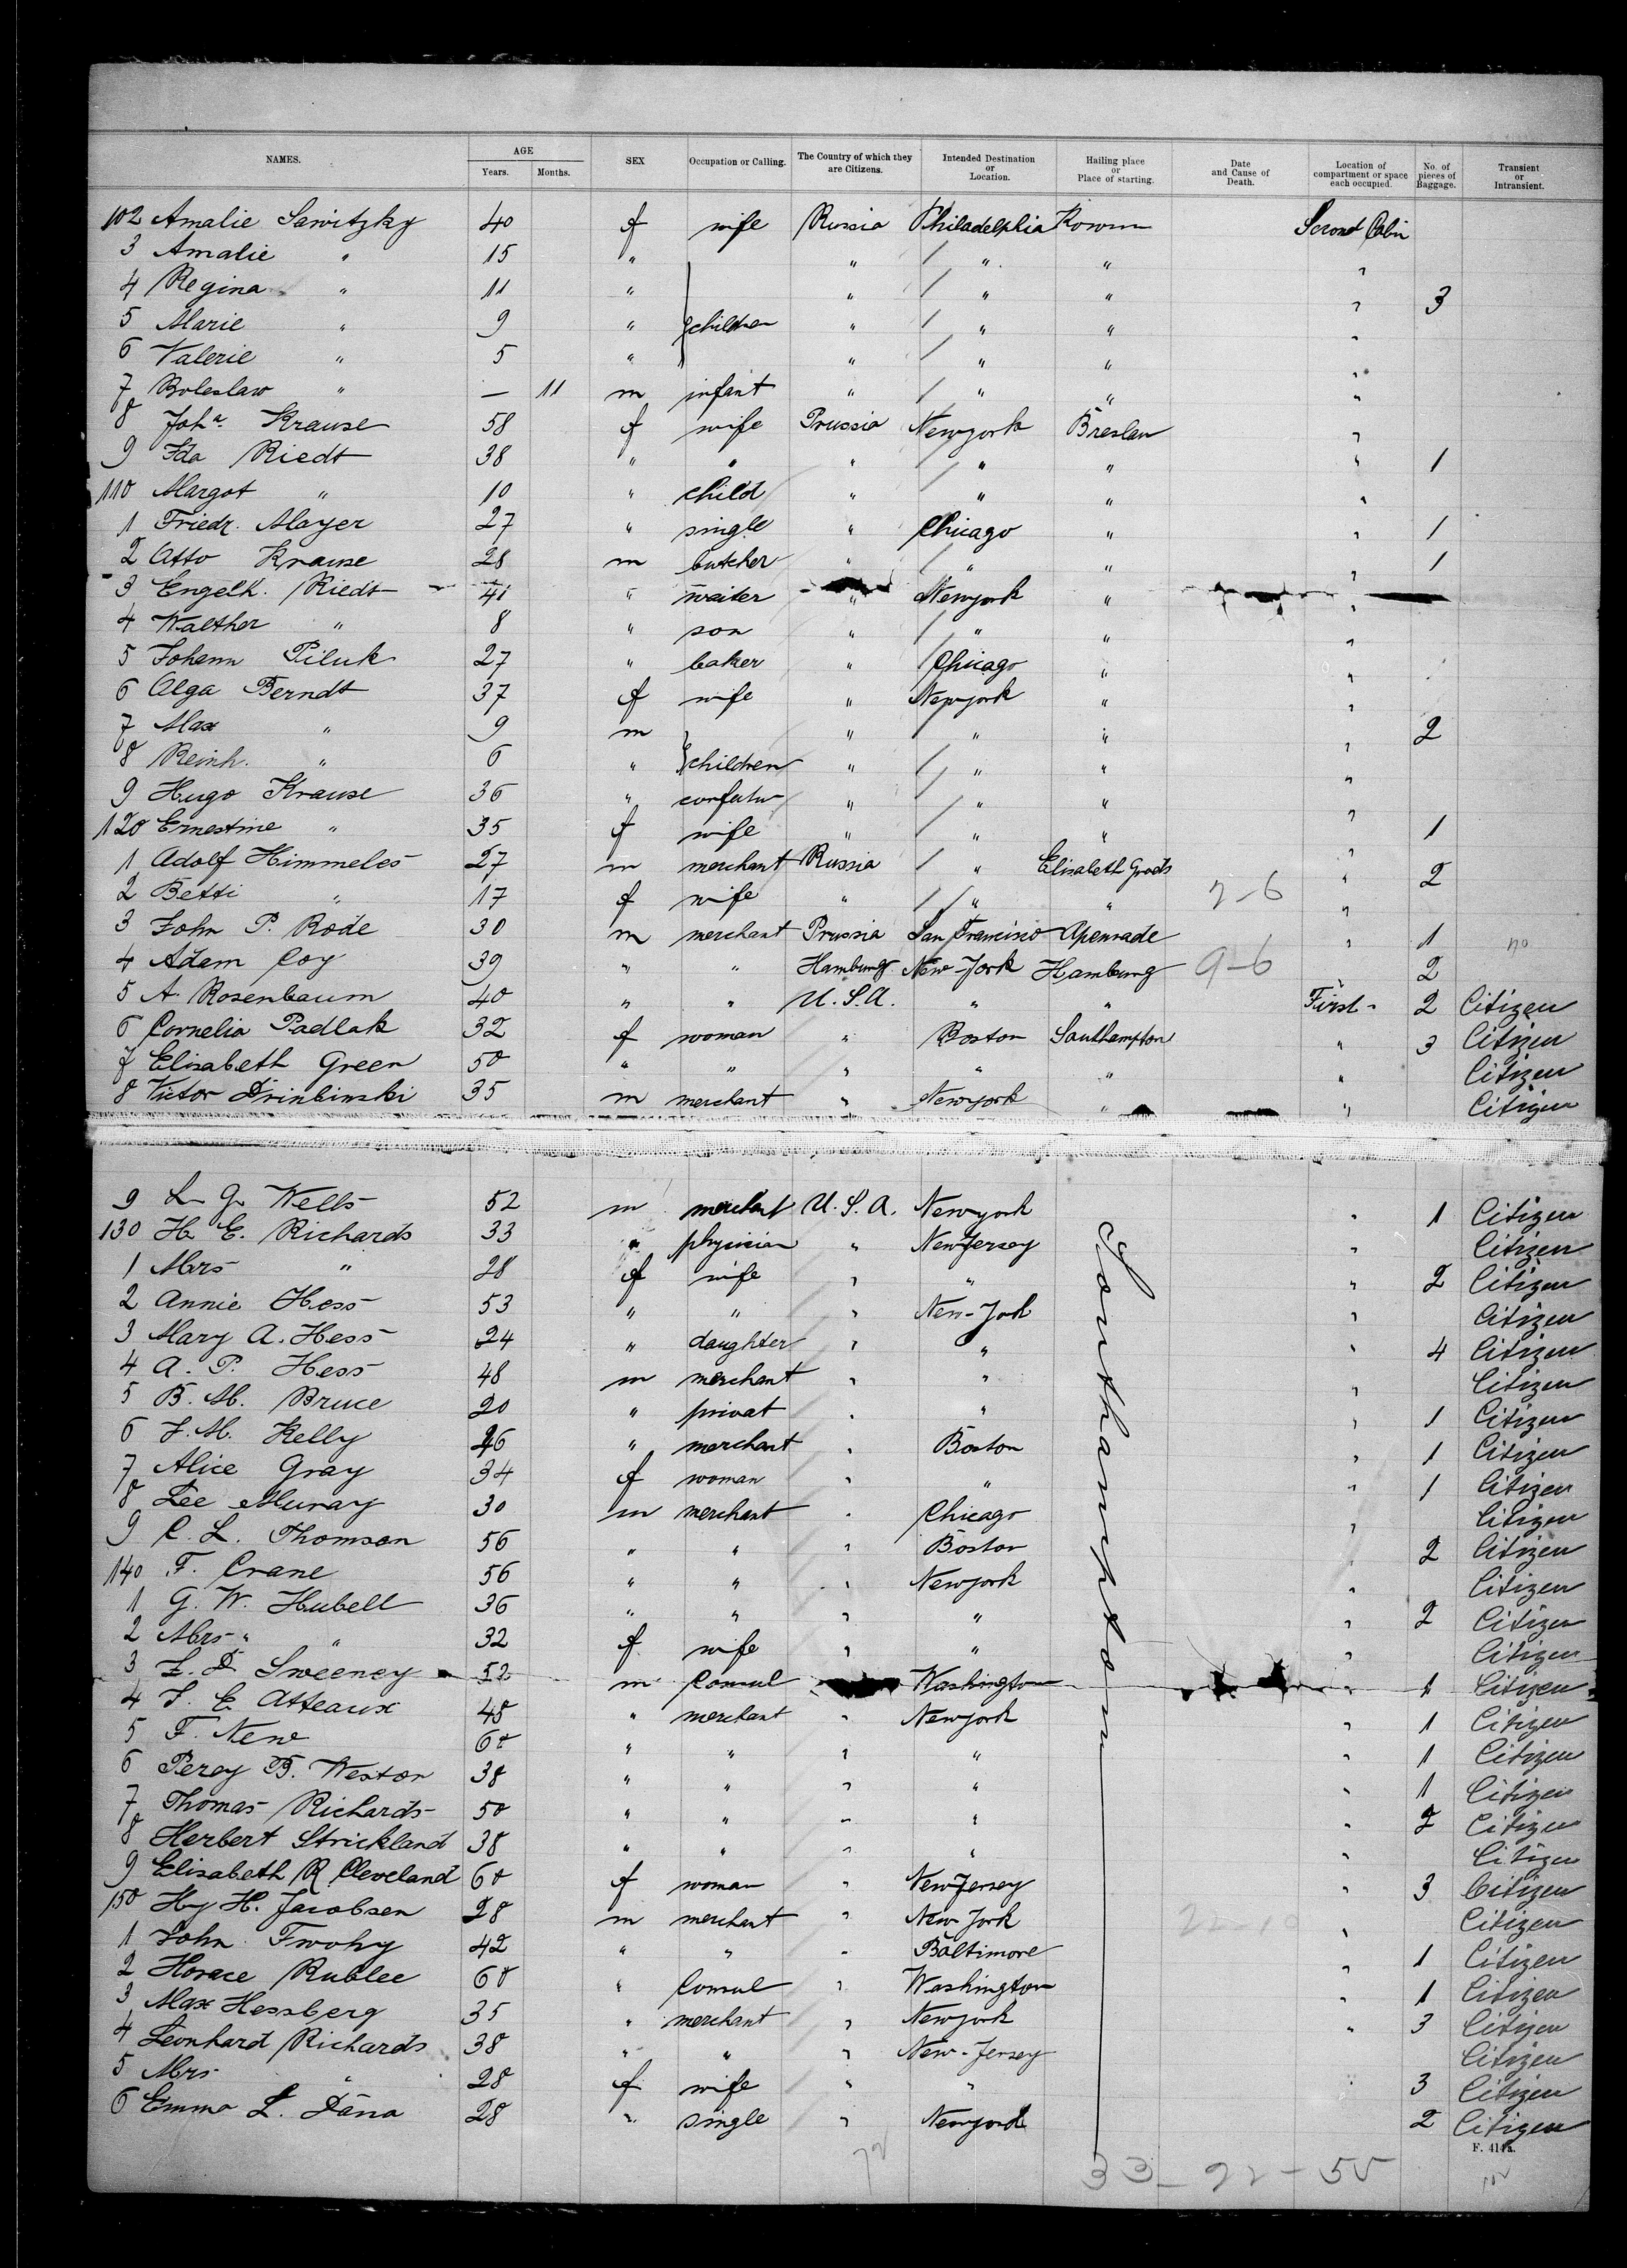 NAMES. AGE Years. Months. SEX Occupation or Calling. The Country of which they are Citizens. Intended Destination or Location. Hailing place or Place of starting. Date and Cause of Death. Location of compartment or space each occupied. No. of pieces of Baggage. Transient or Intransient.
102 Amalie Sawitzky 40 f wife Russia Philadelphia Kowno Second Cabin
3 Amalie " 15 " " " " "
4 Regina " 11 " " " " " 3
5 Marie " 9 " children " " " "
6 Valerie " 5 " " " " "
7 Boleslaw " — 11 m infant " " " "
8 Joha. Krause 58 f wife Prussia Newyork Breslau "
9 Ida Riedt 38 " " " " " " 1
110 Margot " 10 " child " " " "
1 Friedr. Mayer 27 " single " Chicago " " 1
2 Otto Krause 28 m butcher " " " " 1
3 Engelh. Riedt 41 " waiter " Newyork " "
4 Walther " 8 " son " " " "
5 Johann Piluk 27 " baker " Chicago " "
6 Olga Berndt 37 f wife " Newyork " "
7 Max " 9 m " " " " 2
8 Reinh. " 6 " children " " " "
9 Hugo Krause 36 " " " " "
120 Ernestine " 35 f wife " " " " 1
1 Adolf Himmeles 27 m merchant Russia " Elisabeth Grods " 2
2 Betti " 17 f wife " " " 7-6 "
3 John P. Rode 30 m merchant Prussia San Francisco Apenrade " 1 no
4 Adam Coy 39 " " Hamburg New-York Hamburg 9-6 " 2
5 A. Rosenbaum 40 " " U.S.A. " " First 2 Citizen
6 Cornelia Padlak 32 f woman " Boston Southampton " 3 Citizen
7 Elisabeth Green 50 " " " " " " Citizen
8 Victor Drinbinski 35 m merchant " Newyork " " Citizen
9 L. G. Wells 52 m merchant U.S.A. Newyork Southampton " 1 Citizen
130 H. E. Richards 33 " physician " New Jersey " Citizen
1 Mrs " 28 f wife " " " 2 Citizen
2 Annie Hess 53 " " " New-York " Citizen
3 Mary A. Hess 24 " daughter " " " 4 Citizen
4 A. P. Hess 48 m merchant " " " Citizen
5 B. M. Bruce 20 " privat " " " 1 Citizen
6 J. M. Kelly 46 " merchant " Boston " 1 Citizen
7 Alice Gray 34 f woman " " " 1 Citizen
8 Lee Muray 30 m merchant " Chicago " Citizen
9 C. L. Thomson 56 " " " Boston " 2 Citizen
140 F. Crane 56 " " " Newyork " Citizen
1 G. W. Hubell 36 " " " " " 2 Citizen
2 Mrs " " 32 f wife " " " Citizen
3 Z. D. Sweeney 52 m Consul Washington " 1 Citizen
4 F. E. Atteaux 48 " merchant " Newyork " 1 Citizen
5 F. New 60 " " " " " 1 Citizen
6 Percy B. Weston 38 " " " " " 1 Citizen
7 Thomas Richards 50 " " " " " 2 Citizen
8 Herbert Strickland 38 " " " " " Citizen
9 Elisabeth R. Cleveland 60 f woman " New Jersey " 3 Citizen
150 Hy H. Jacobsen 28 m merchant " New York 22-10 " Citizen
1 John Twohy 42 " " " Baltimore " 1 Citizen
2 Horace Rublee 60 " Consul " Washington " 1 Citizen
3 Max Hessberg 35 " merchant " Newyork " 3 Citizen
4 Leonhard Richards 38 " " " New-Jersey Citizen
5 Mrs " 28 f wife " " " 3 Citizen
6 Emma L. Dana 28 " single " Newyork 2 Citizen
F. 414a.
33-22-55